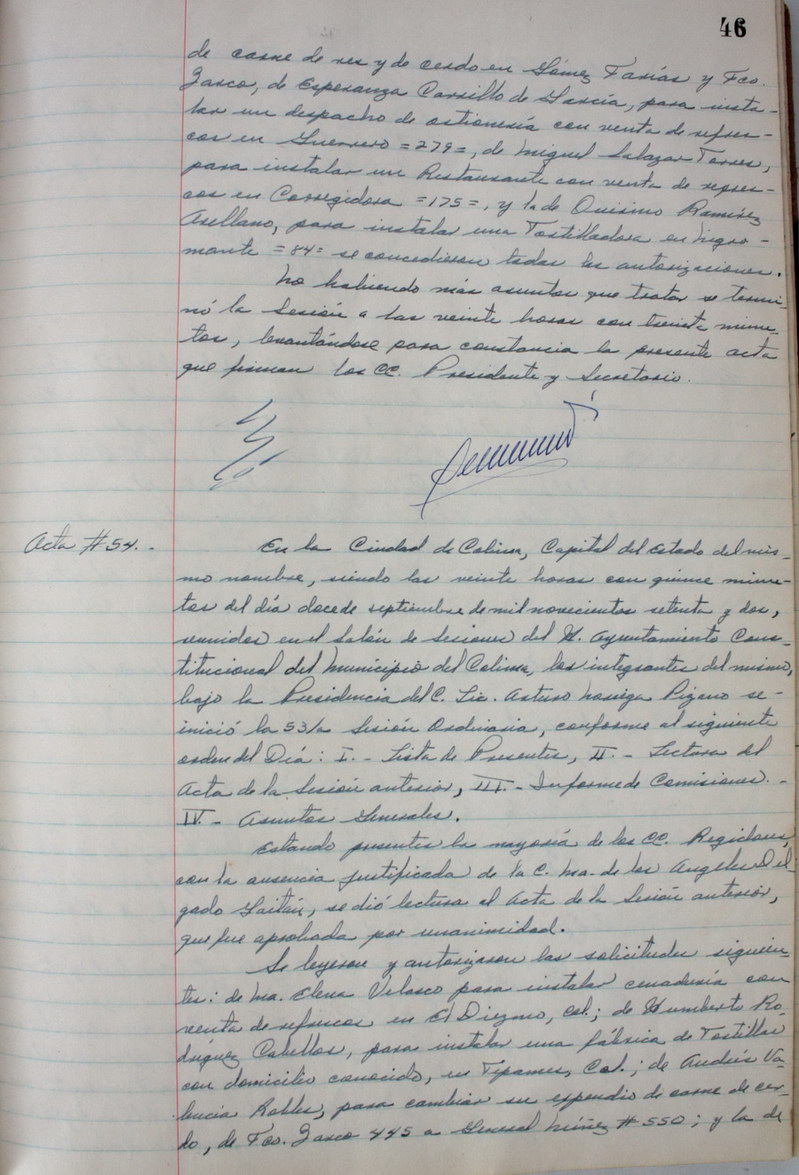 46
de carne de res y de cerdo en Gómez Farías y Fco.
Zarco, de Esperanza Carrillo de García, para insta-
lar un despacho de ostionería con venta de refres-
cos en Guerrero =279=, de Miguel Salazar Torres,
para instalar un Restaurante con venta de refres-
cos en Corregidora =175=, y la de Ramírez
Arellano, para instalar una Tortilladora en Nigro-
mante =84= se concedieron todas las autorizaciones.
No habiendo más asuntos que tratar se termi-
nó la Sesión a las veinte horas con treinta minu-
tos, levantándose para constancia la presente acta
que firman los CC. Presidente y Secretario.
Acta #54.-
En la Ciudad de Colima, Capital del Estado del mis-
mo nombre, siendo las veinte horas con quince minu-
tos del día doce de septiembre de mil novecientos setenta y dos,
reunidos en el Salón de Sesiones del H. Ayuntamiento Cons-
titucional del Municipio del Colima, los integrantes del mismo,
bajo la Presidencia del C. Lic. Arturo Noriega Pizano se-
inició la 53/a Sesión Ordinaria, conforme al siguiente
orden del Día: I.- Lista de Presentes, II.- Lectura del
Acta de la Sesión anterior, III.- Informe de Comisiones.-
IV.- Asuntos Generales.
Estando presentes la mayoría de los CC. Regidores,
con la ausencia justificada de la C. Ma. de los Angeles Del
gado Gaitán, se dió lectura al Acta de la Sesión anterior,
que fue aprobada por unanimidad.
Se leyeron y autorizaron las solicitudes siguien-
tes: de Ma. Elena Velasco para instalar cenaduría con
venta de refrescos en El Diezmo, Col.; de Humberto Ro-
dríguez Ceballos, para instalar una fábrica de Tortillas
con domicilio conocido, en Tepames, Col.; de Andrés Va-
lencia Robles, para cambiar su expendio de carne de cer-
do, de Fco. Zarco 445 a General Núñez #550; y la de